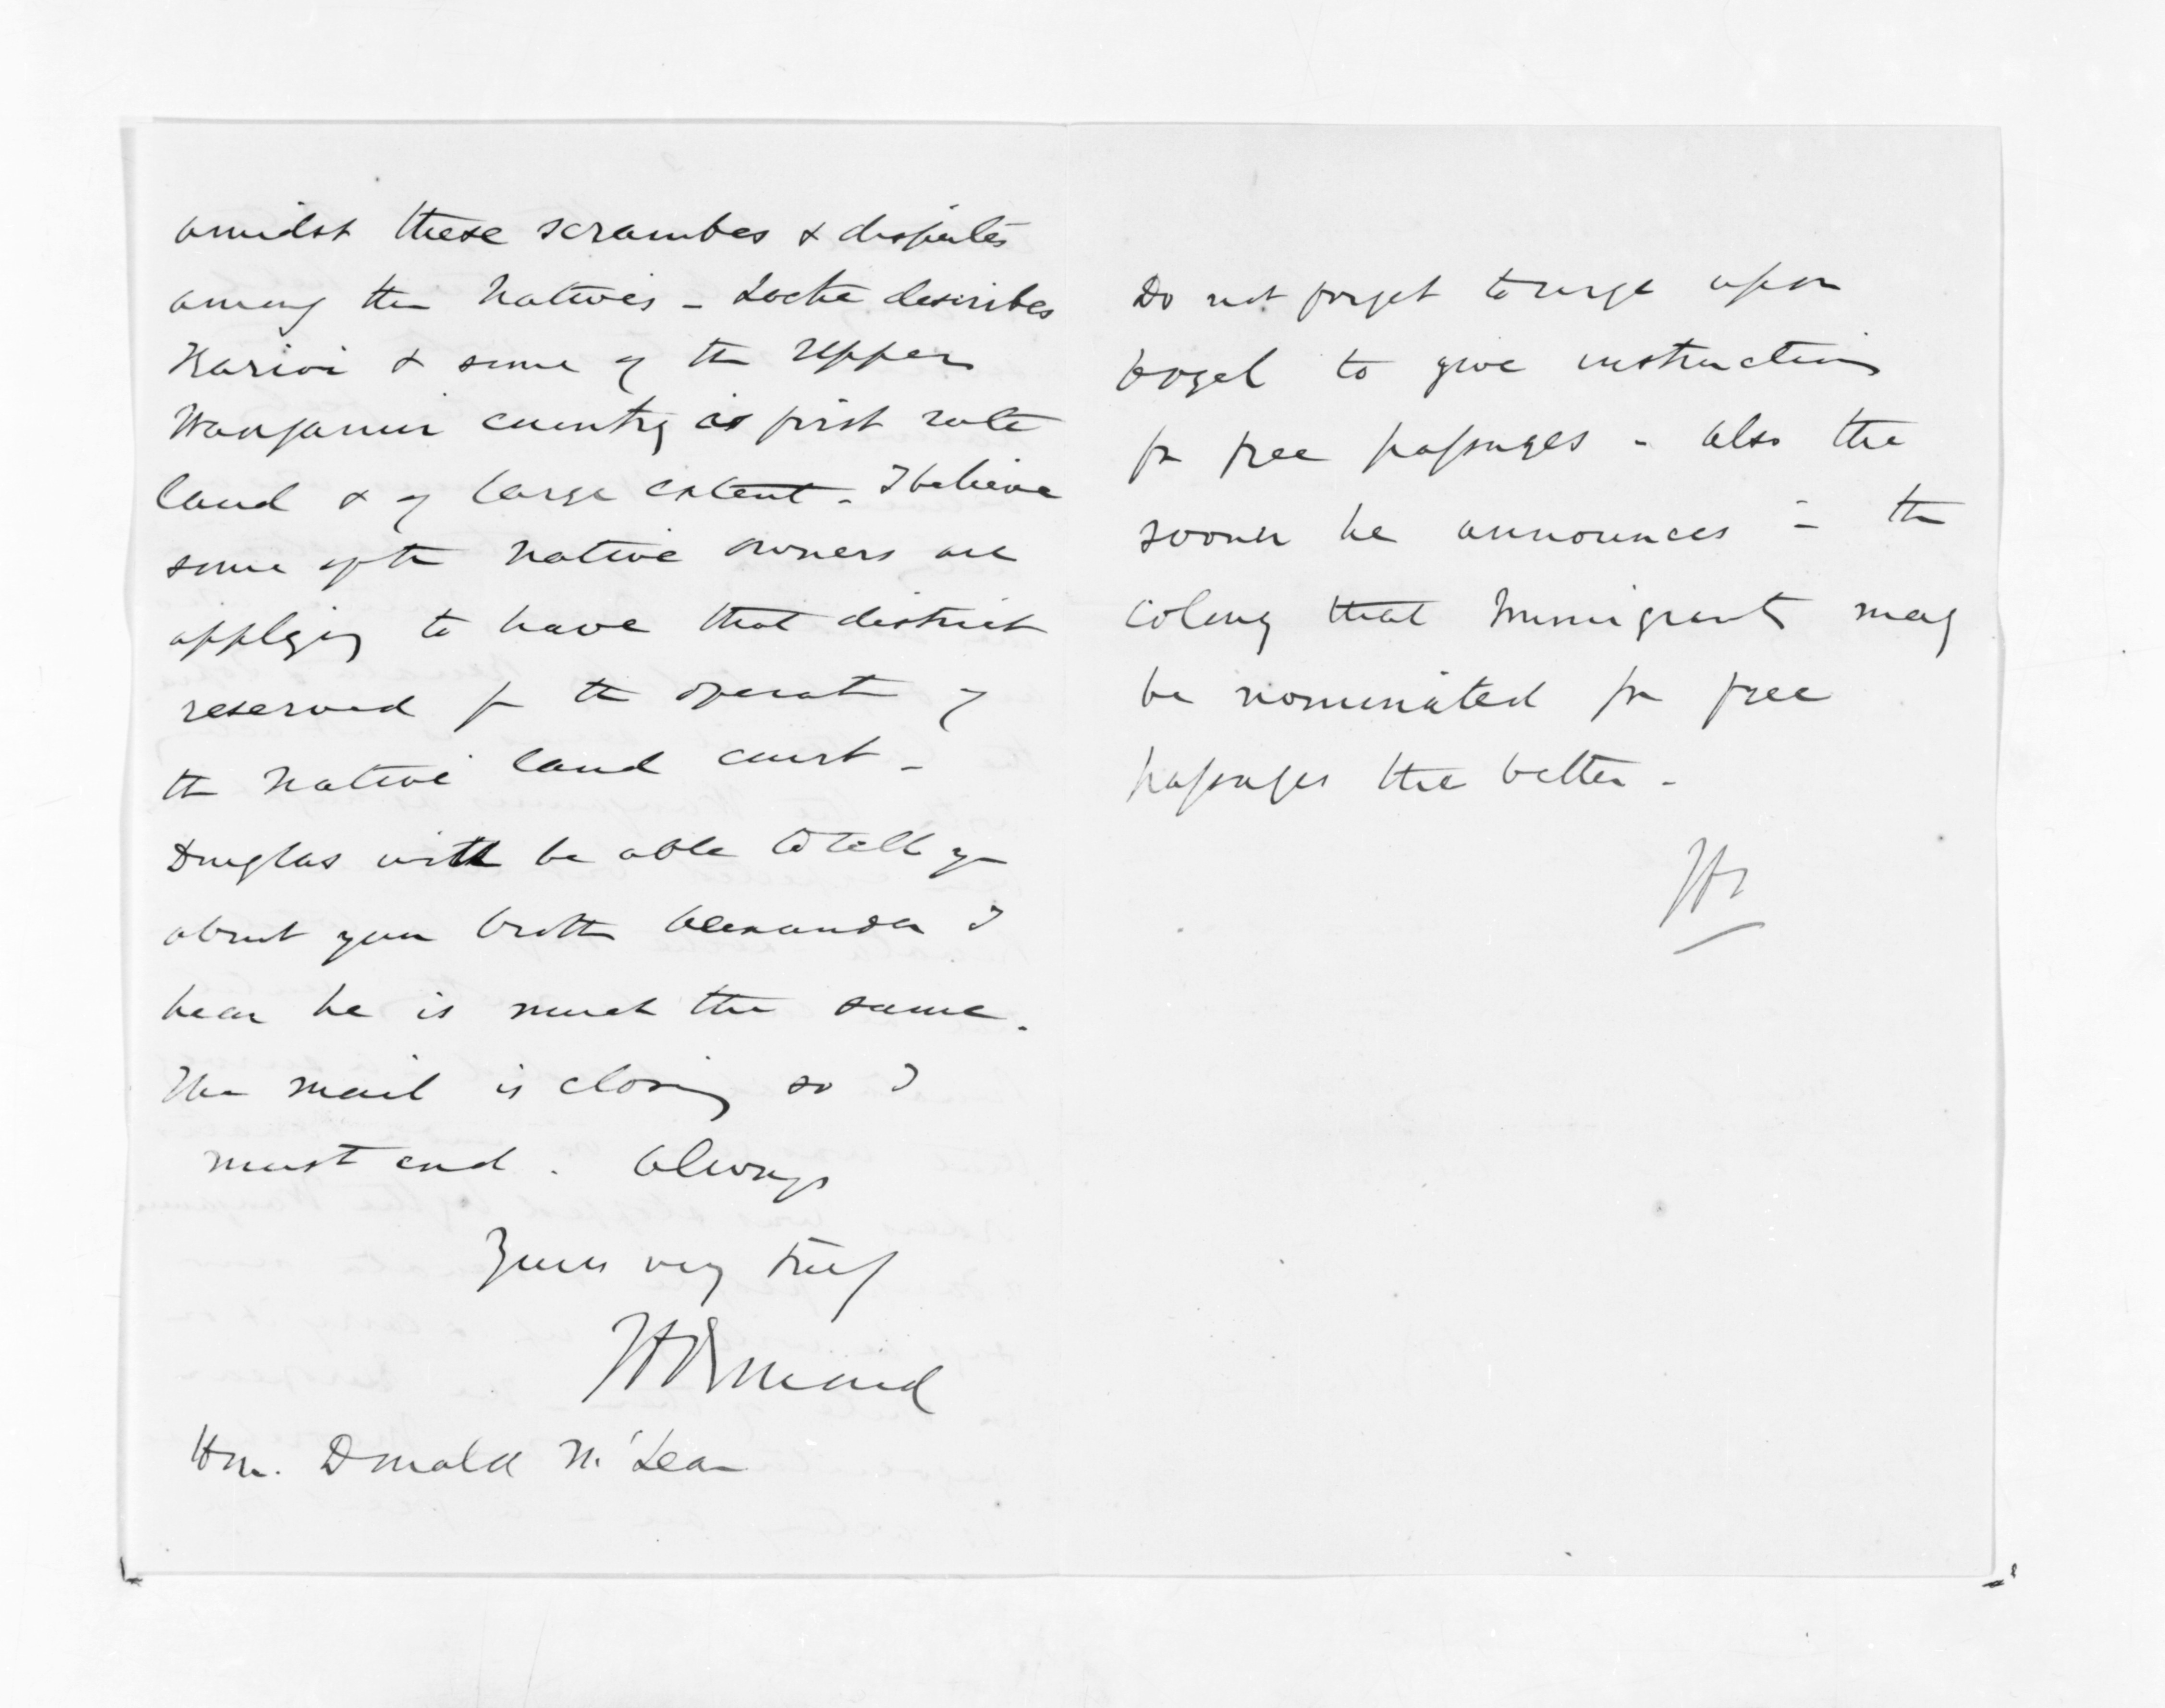 amidst these scrambes & disputes
among the Natives - Locke describes
Karioi & some of the Upper
Wanganui country as first rate
land & of large extent - I believe
some of the Native owners are
applying to have that district
reserved for the operatn of
the Native land court -
Douglas will be able to tell you
about your brother Alexander I
hear he is much the same.
The mail is closing so I
must end. Always
Yours very truly
JDOrmond
Hon. Donald McLean
Do not forget to urge upon
Vogel to give instructions
for free passages - also the
sooner he announces in the
Colony that Immigrants may
be nominated for free
passages the better -